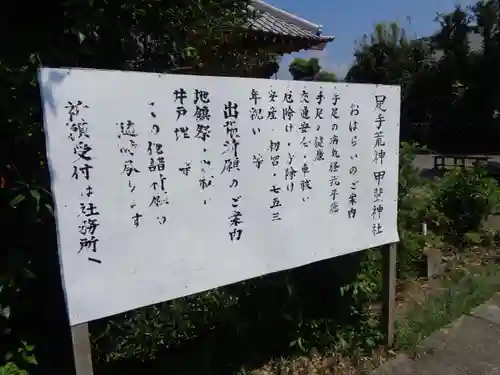 足手荒神 甲斐神社
おはらいのご案内
手足の病気怪我平癒
手足の健康
交通安全・車祓
厄除け・子除け
安産・初宮・七五三
年祝い 等
出張祈願のご案内
地鎮祭
井戸埋 等
この他諸祈願
祈願受付は社務所へ